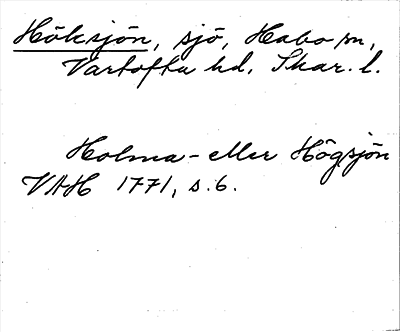 Höksjön, sjö, Habo sn,
Vartofta hd, Skar. l.
Holma- eller Högsjön
VAH 1771, s. 6.